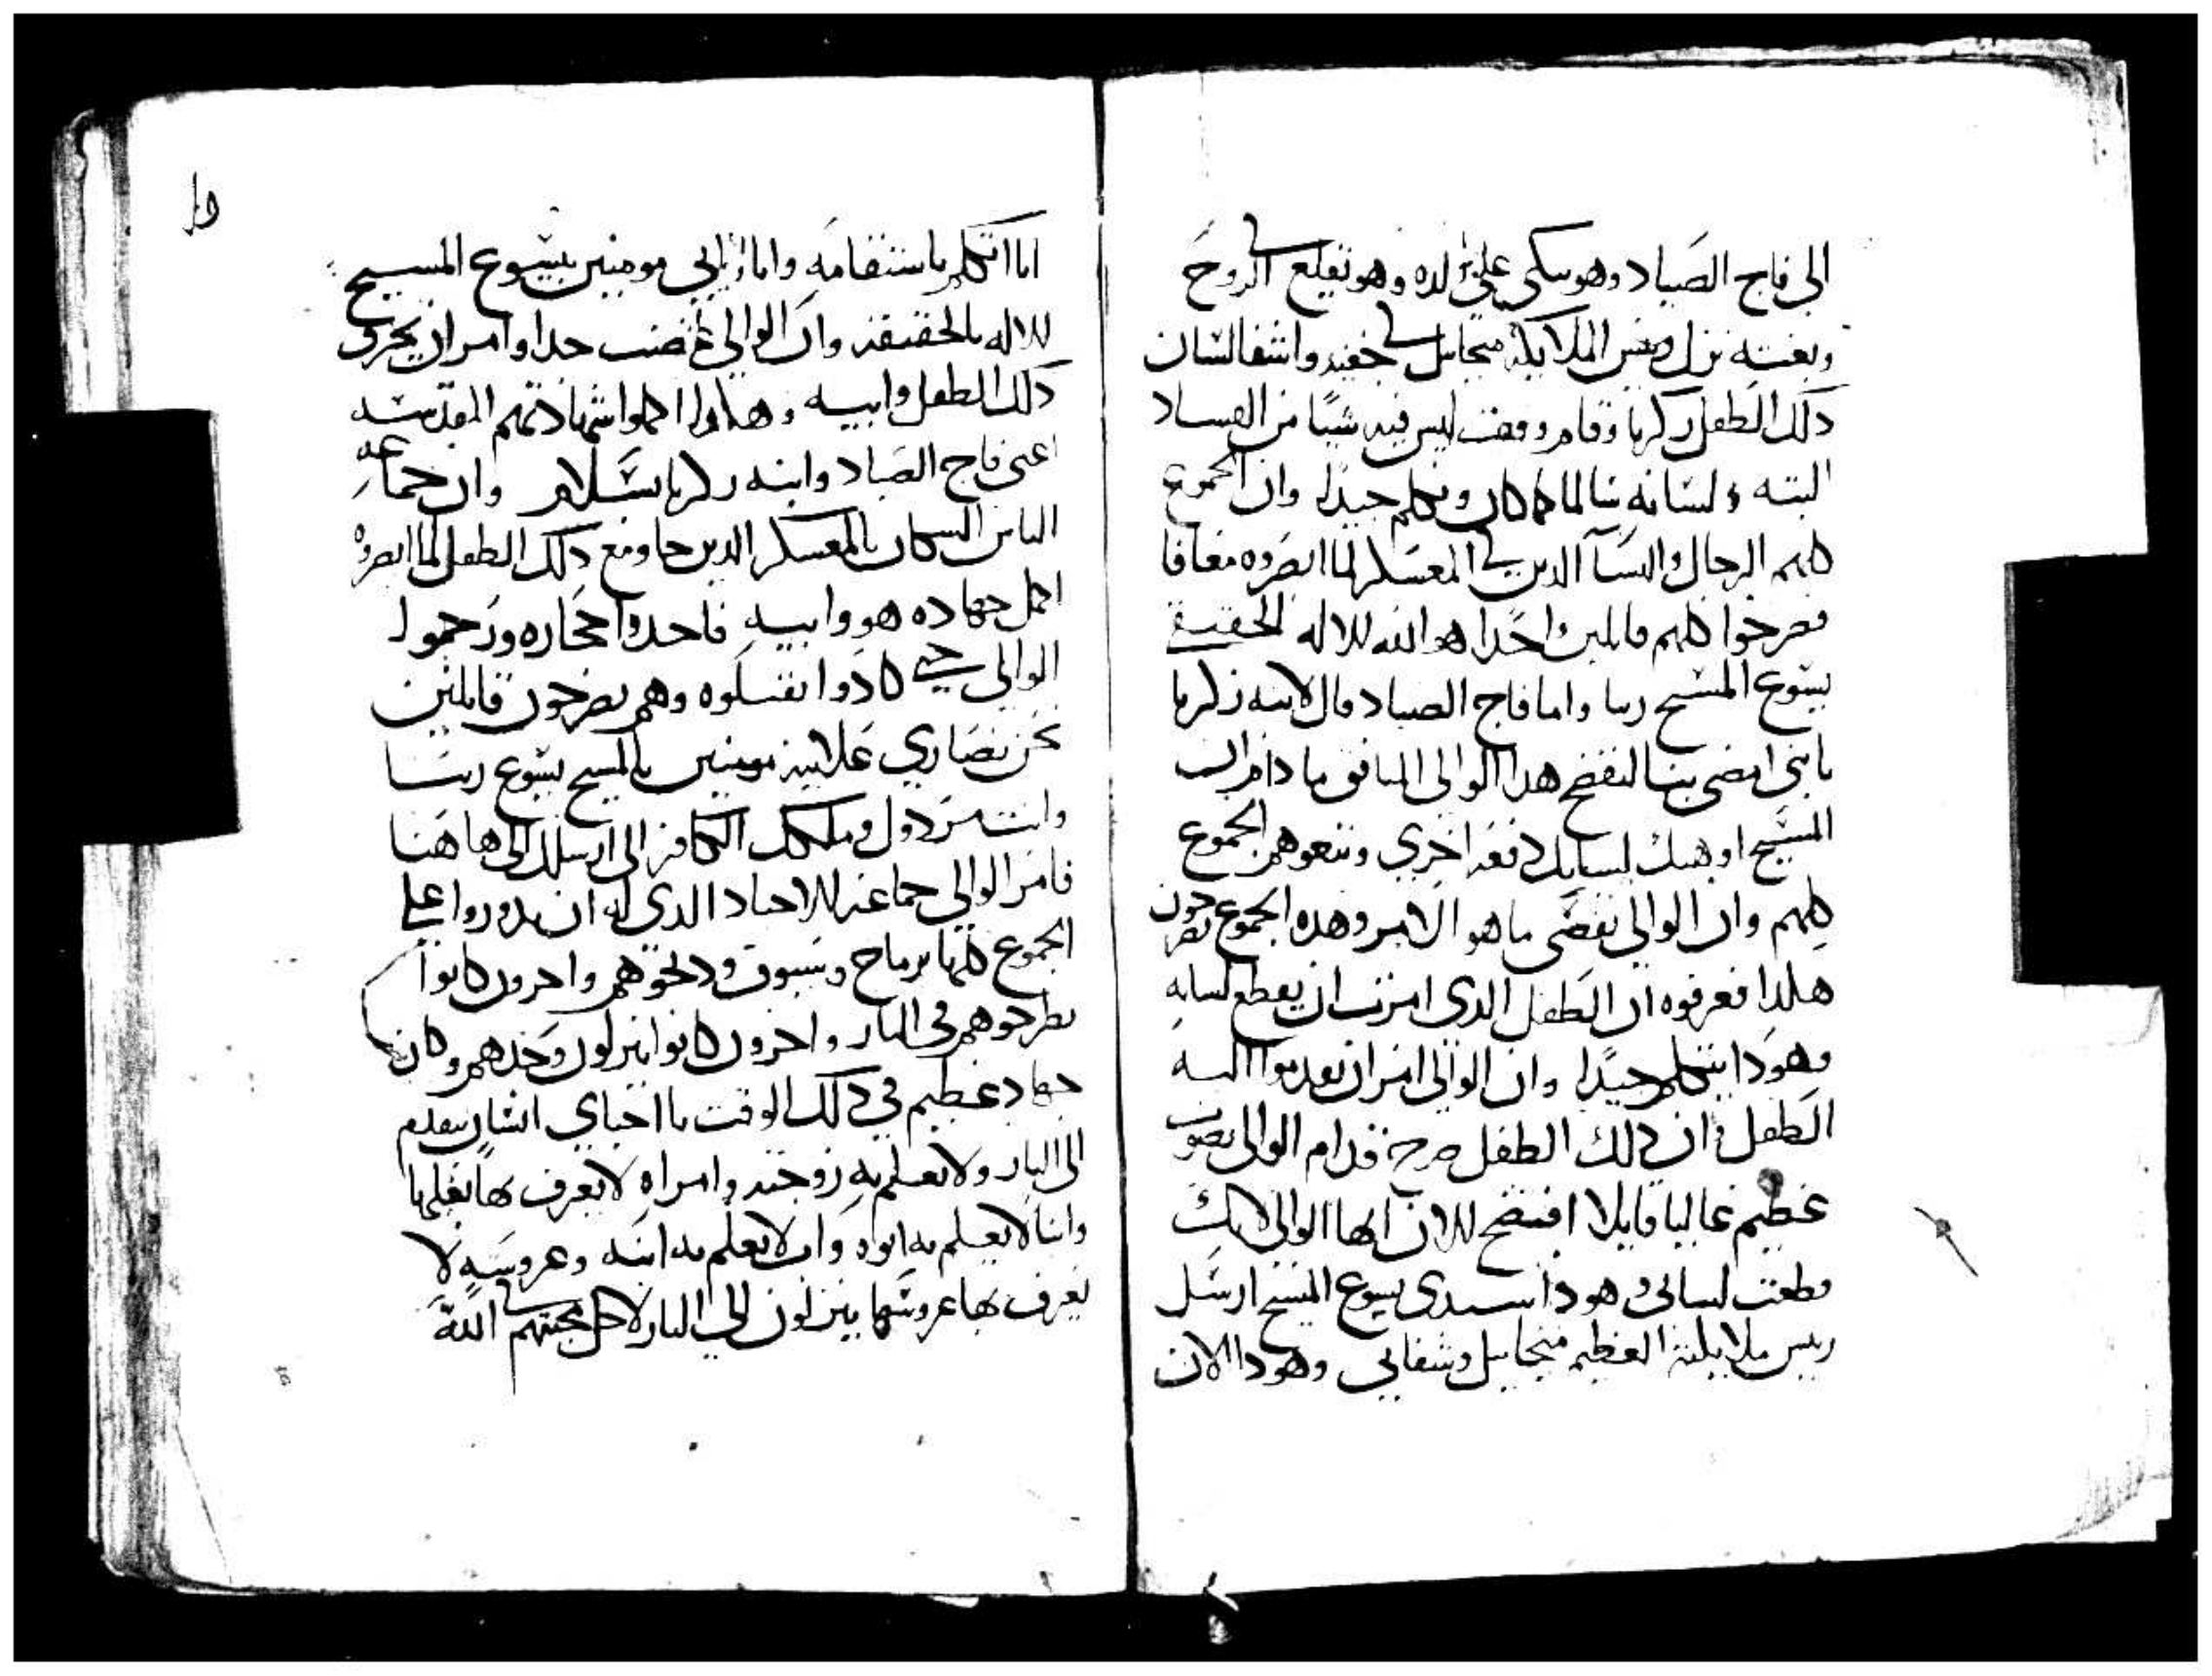 الى فاج الصياد وهو يبكي على ولده وهو يقلع الروح
وبغته نزل رييس الملايكه ميخاييل في خفيه واشفا لسان
ذلك الطفل زكريا وقام ووقف ليس فيه شيًا من الفساد
البته ولسانه سالما كما كان وتكلم جيدا وان الجموع
كلهم الرجال والنسآ الدين في المعسكر لما ابصروه معافا
فصرخوا كلهم قايلين واحدا هو الله الاله الحقيقي
يسوع المسيح ربنا واما فاج الصياد قال لابنه زكريا
يا بني امضي بنا لنفضح هدا الوالي المنافق ما دام الرب
المسيح اوهبك لسانك دفعه اخري وتبعوهم الجموع
كلهم وان الوالي تقصى ما هو الامر وهده الجموع يصرخون
هكدا فعرفوه ان الطفل الدي امرت ان يقطع لسانه
وهودا يتكلم جيدًا وان الوالي امر ان يقدموا اليه
الطفل وان دلك الطفل صرخ قدام الوالي بصوت
عظيم عاليا قايلا افتضح الان ايها الوالي لانك
قطعت لساني وهودا سيدي يسوع المسيح ارسل
رييس ملايكته العظيم ميخاييل وشفاني وهودا الان
انا اتكلم باستقامه وانا وابي مومنين بيسوع المسيح
الاله بالحقيقه وان الوالي غضب جدا وامر ان يحرق
دلك الطفل وابيه وهكدا اكملوا شهادتهم المقدسه
اعني فاج الصياد وابنه زكريا بسلام وان جماعه
الناس السكان بالمعسكر الدين جاو مع دلك الطفل لما ابصروه
اكمل جهاده هو وابيه فاخدوا حجاره ورجموا
الوالي حتي كادوا يقتلوه وهم يصرخون قايلين
نحن نصاري علانيه مومنين بالمسيح يسوع ربنا
وانت مردول وملكك الكافر الي ارسلك الى هاهنا
فامر الوالي جماعه الاجناد الدى له ان يدوروا علي
الجموع كلها برماح وسيوف ودبحوهم واخرون كانوا
يطرحوهم في النار واخرون كانوا ينزلون وحدهم وكان
جهاد عظيم في دلك الوقت يا احباي انسان يتقدم
الى النار ولا تعلم به زوجته وامراه لا يعرف بها بعلها
وابنا لا يعلم به ابوه واب لا يعلم به ابنه وعروسه لا
يعرف بها عروسها ينزلون الى النار لاجل محبتهم في الله